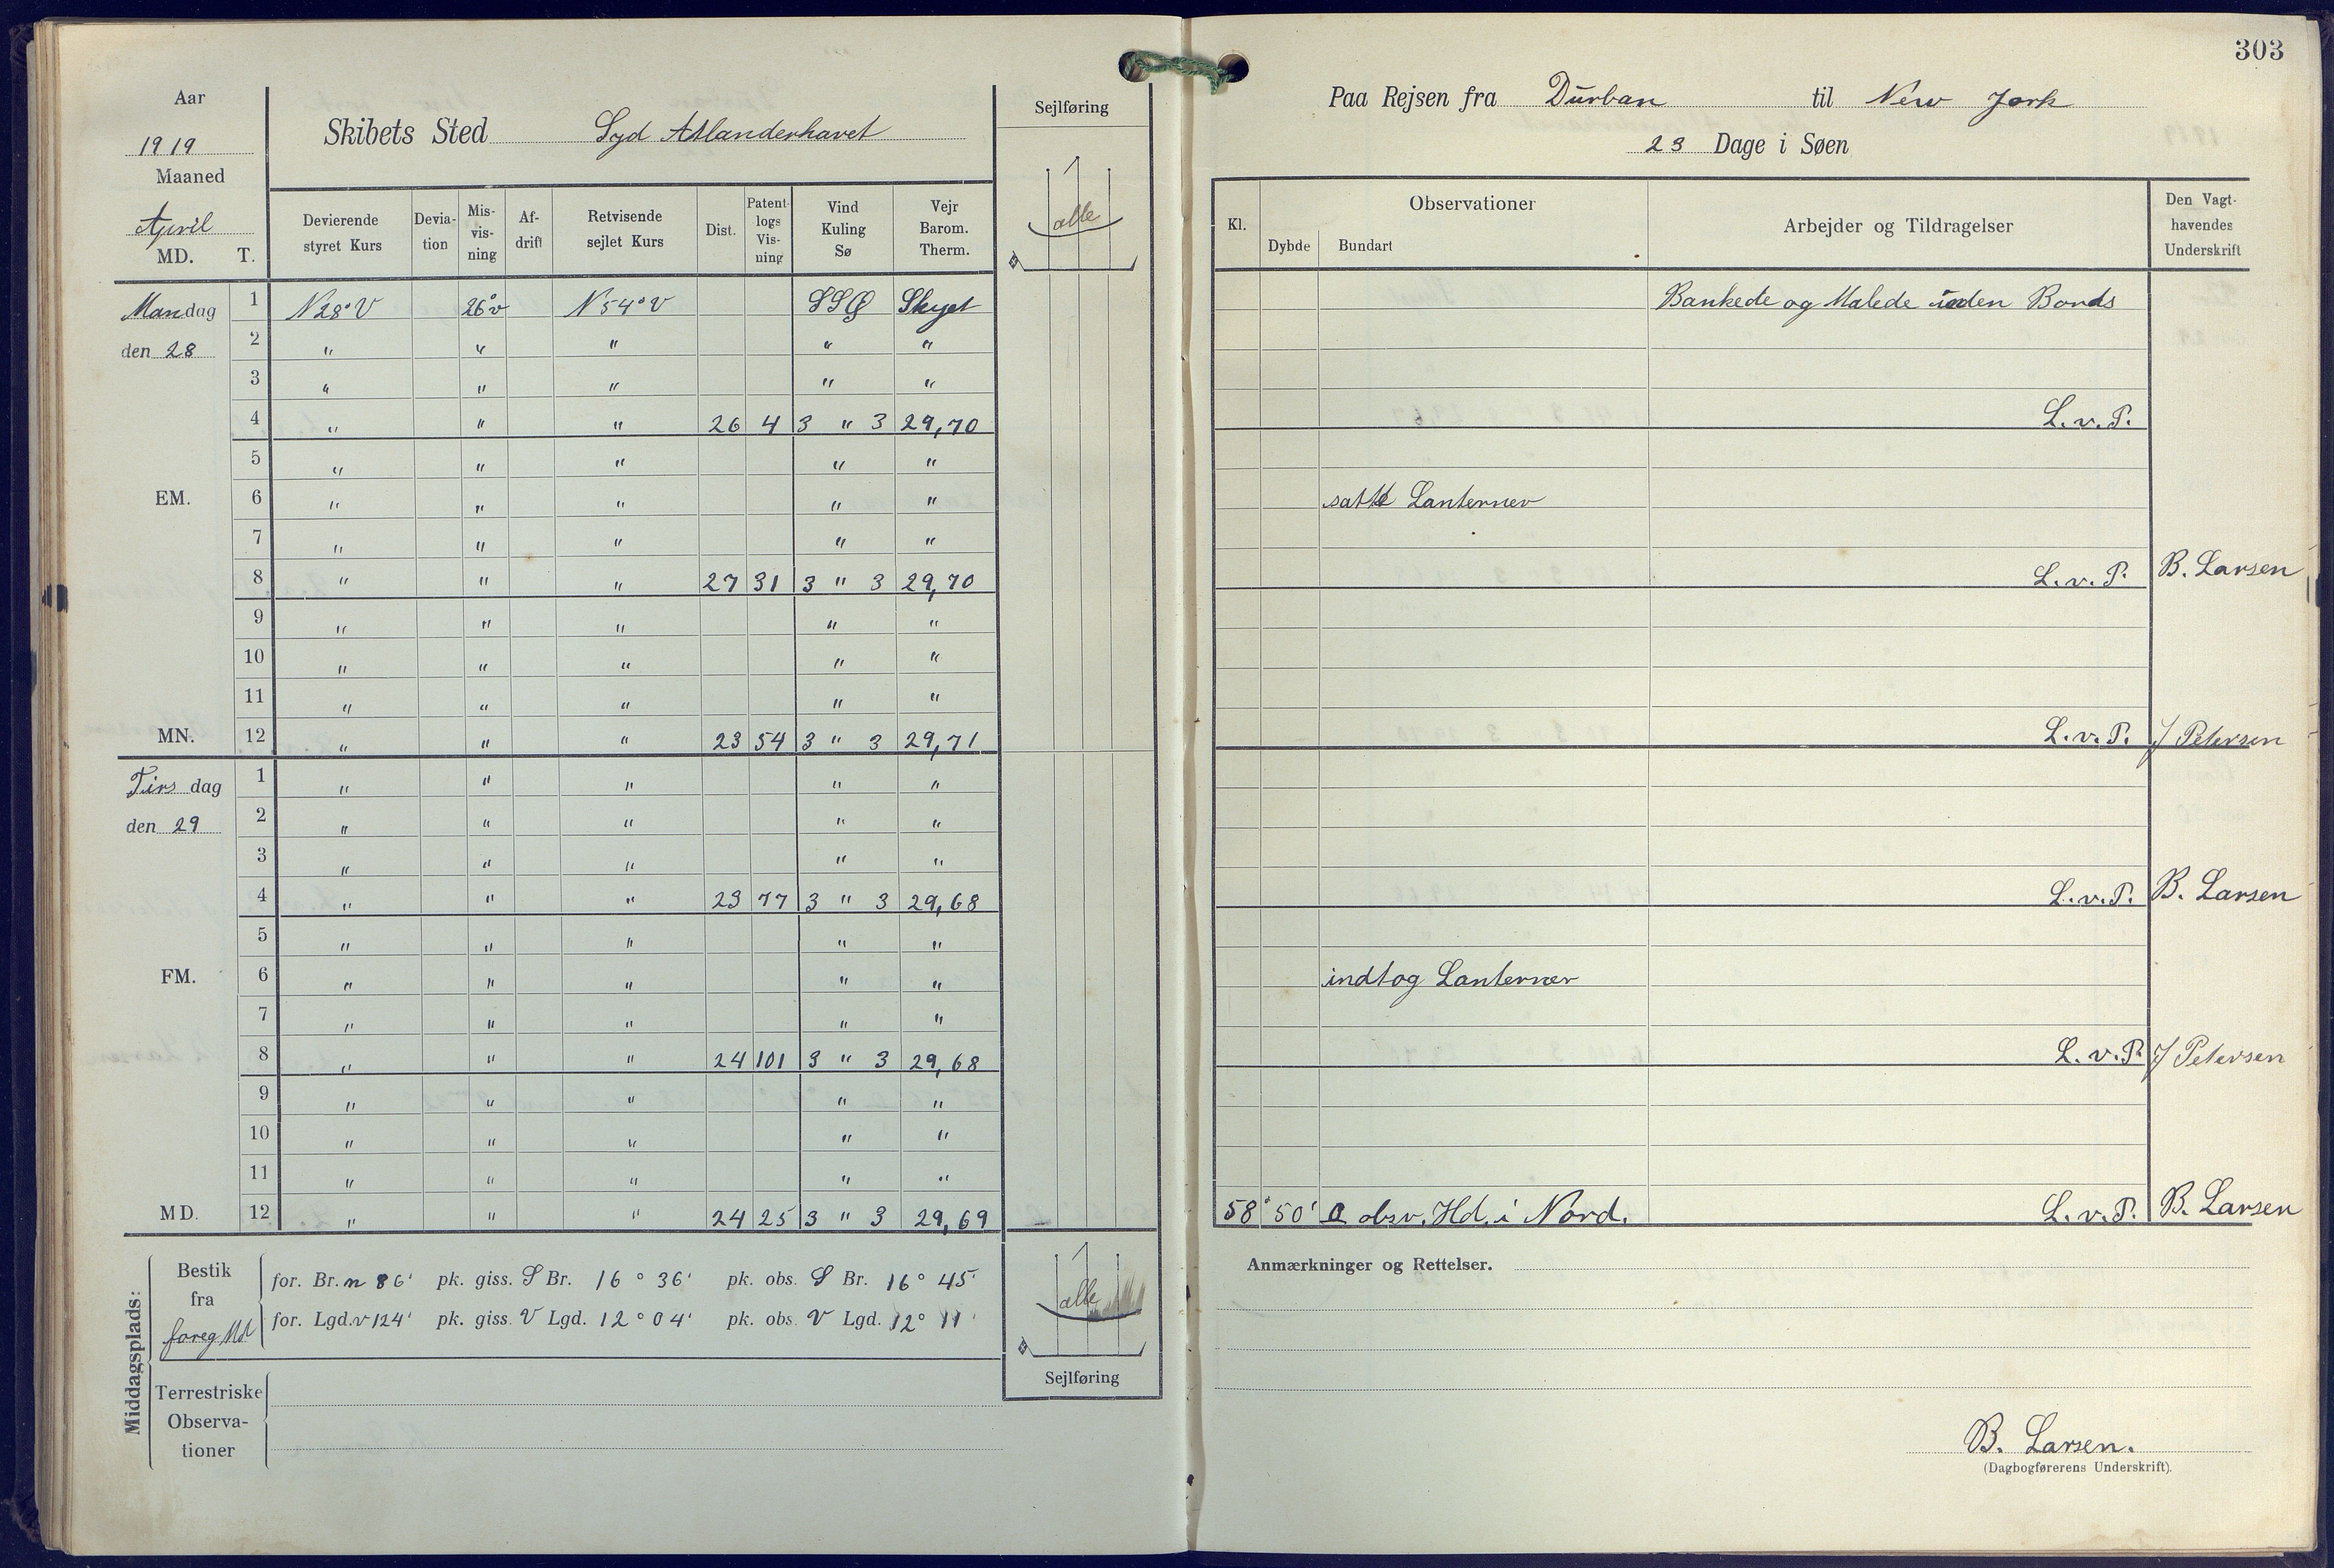 303
Aar
1919
Maaned
April
MD. T.
Skibets Sted Syd Atlanderhavet
Sejlføring
alle
Paa Rejsen fra Durban til New Jork
23 Dage i Søen
Devierende styret Kurs
Devia- tion
Mis- vis- ning
Af- drift
Retvisende sejlet Kurs
Dist.
Patent- logs Vis- ning
Vind Kuling Sø
Vejr Barom. Therm.
Kl.
Observationer
Dybde Bundart
Arbejder og Tildragelser
Den Vagt- havendes Underskrift
Mandag 1 N28°V 26°v N54°V SSØ Skyet Bankede og Malede inden Bords
den 28 2 " " " " "
3 " " " " "
4 " " " 26 4 3 " 3 29,70 L.v.P.
5 " " " " "
EM. 6 " " " " " satte Lanterner
7 " " " " "
8 " " " 27 31 3 " 3 29,70 L.v.P. B. Larsen
9 " " " " "
10 " " " " "
11 " " " " "
MN. 12 " " " 23 54 3 " 3 29,71 L.v.P. J Petersen
Tirsdag 1 " " " " "
den 29 2 " " " " "
3 " " " " "
4 " " " 23 77 3 " 3 29,68 L.v.P. B. Larsen
5 " " " " "
FM. 6 " " " " " indtog Lanterner
7 " " " " "
8 " " " 24 101 3 " 3 29,68 L.v.P. J Petersen
9 " " " " "
10 " " " " "
11 " " " " "
MD. 12 " " " 24 25 3 " 3 29,69 58° 50' obsv. Hd. i Nord. L.v.P. B. Larsen
Middagsplads:
Bestik fra foreg Md
for. Br. n 86' pk. giss. S Br. 16° 36' pk. obs. S Br. 16° 45'
for. Lgd. v 124' pk. giss. V Lgd. 12° 04' pk. obs. V Lgd. 12° 11'
Terrestriske
Observa-
tioner
alle
Sejlføring
Anmærkninger og Rettelser.
B. Larsen.
(Dagbogførerens Underskrift).